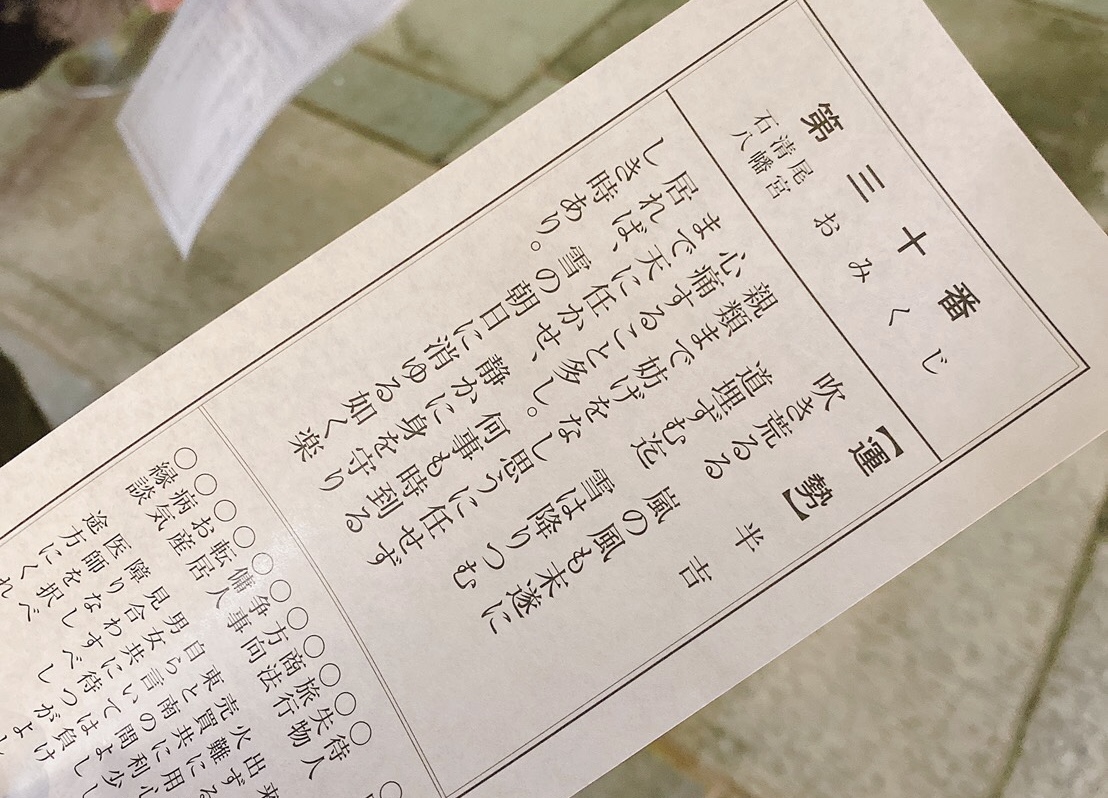 第三十番
石清尾
八幡宮
おみくじ
【運勢】半吉
吹き荒るる嵐の風も末遂に
道埋ずむ迄雪は降りつむ
親類まで妨げをなし思うに任せず
心痛すること多し。何事も時到る
まで天に任かせ、静かに身を守り
居れば、雪の朝日に消ゆる如く楽
しき時あり。
○待人 来
○失物 出ずる
○旅行 火難に用心
○商法 売買共に利
○方向 東南の間よし
○争事
○傭人 男女共に
○転居 見合わすべし
○お産 障りなし
○病気 医師を択べ
○縁談 途方にくれ